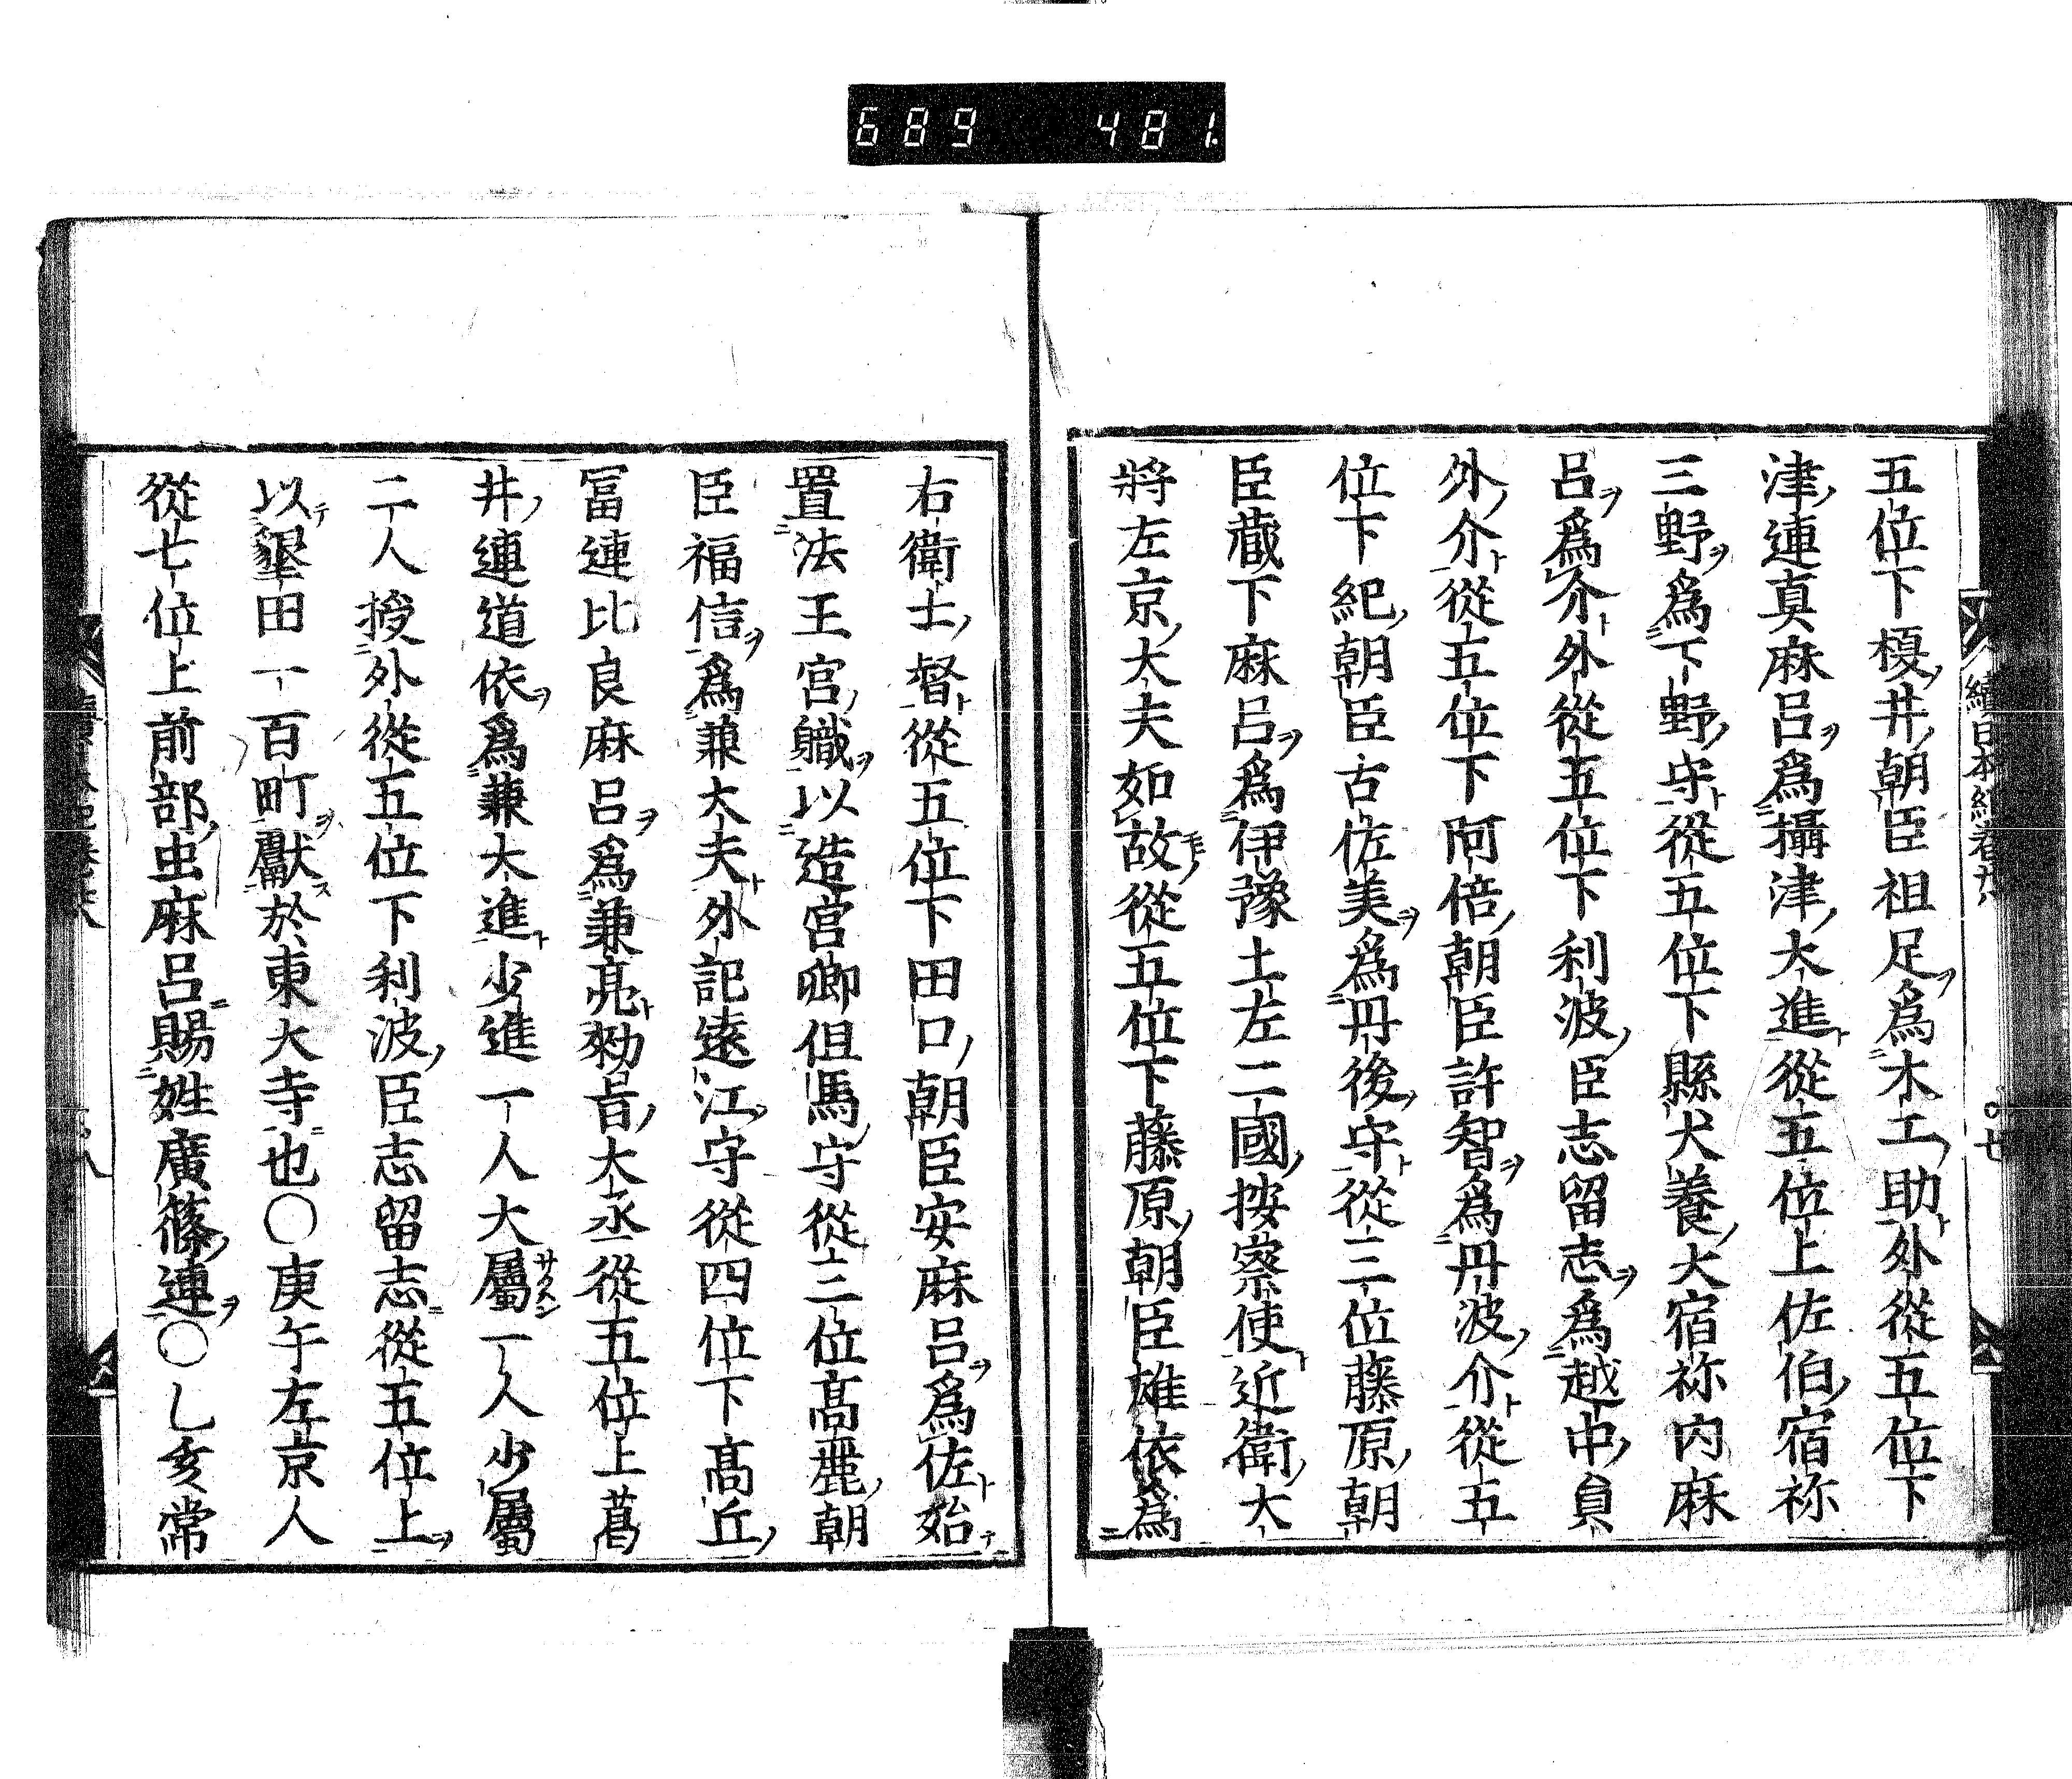 689 481
五位下榎井朝臣祖足爲木工助外從五位下
津連真麻呂爲攝津大進從五位上佐伯宿祢
三野爲下野守從五位下縣犬養大宿祢内麻
呂爲介外從五位下利波臣志留志爲越中員
外介從五位下阿倍朝臣許智爲丹波介從五
位下紀朝臣古佐美爲丹後守從三位藤原朝
臣蔵下麻呂爲伊豫土左二國按察使近衛大
將左京大夫如故從五位下藤原朝臣雄依爲
右衛士督從五位下田口朝臣安麻呂爲佐始
置法王宮職以造宮卿但馬守從三位髙麗朝
臣福信爲兼大夫外記遠江守從四位下髙丘
冨連比良麻呂爲兼亮勑旨大丞從五位上葛
井連道依爲兼大進少進一人大屬一人少屬
二人授外從五位下利波臣志留志從五位上
以墾田一百町獻於東大寺也〇庚午左京人
從七位上前部虫麻呂賜姓廣篠連〇乙亥常